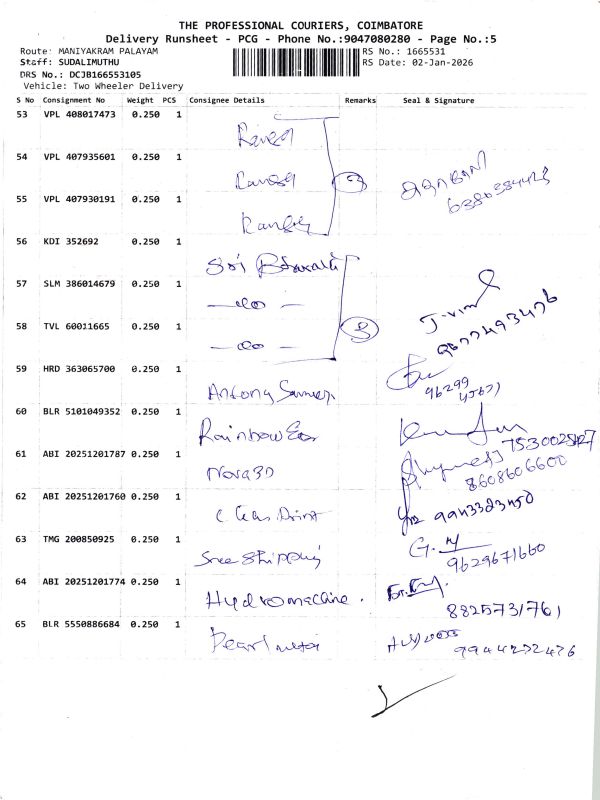 THE PROFESSIONAL COURIERS, COIMBATORE
Delivery Runsheet - PCG - Phone No.:9047080280 - Page No.:5
Route: MANIYAKRAM PALAYAM RS No.: 1665531
Staff: SUDALIMUTHU RS Date: 02-Jan-2026
DRS No.: DCJB166553105
Vehicle: Two Wheeler Delivery
S No Consignment No Weight PCS Consignee Details Remarks Seal & Signature
53 VPL 408017473 0.250 1
54 VPL 407935601 0.250 1
55 VPL 407930191 0.250 1
56 KDI 352692 0.250 1 Sri Bharath
57 SLM 386014679 0.250 1 — do —
58 TVL 60011665 0.250 1 — do — 3 9677493476
59 HRD 363065700 0.250 1 Antony 96299
60 BLR 5101049352 0.250 1 Rainbow
61 ABI 20251201787 0.250 1 Nova3D 8608606600
62 ABI 20251201760 0.250 1 9943323450
63 TMG 200850925 0.250 1 Sree Shipping 9629671660
64 ABI 20251201774 0.250 1 Hydromachine. 8825731761
65 BLR 5550886684 0.250 1 Pearl 9944272476